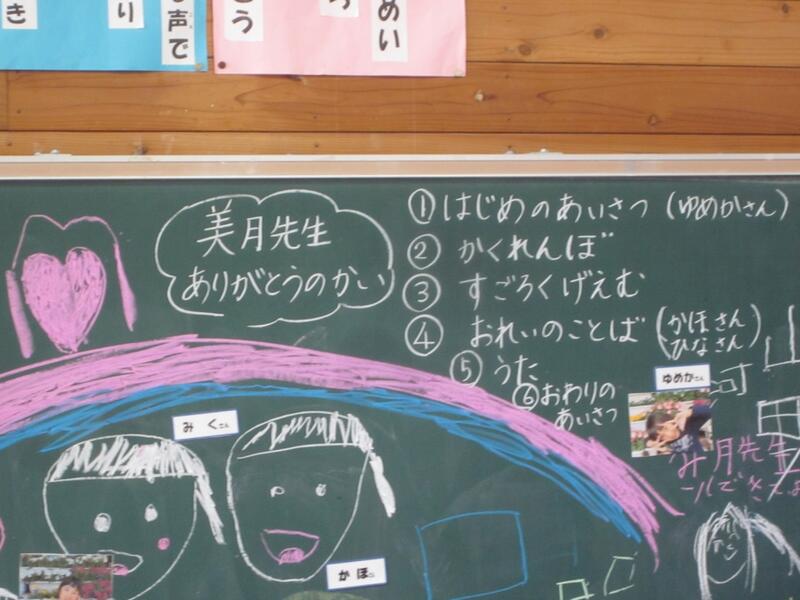 き
り
声で
とう
めい
美月先生
ありがとうのかい
①はじめのあいさつ(ゆめかさん)
②かくれんぼ
③すごろくげえむ
④おれいのことば(かほさん
ひなさん)
⑤うた
⑥おわりの
あいさつ
ゆめかさん
みくさん
かほさん
み月先生